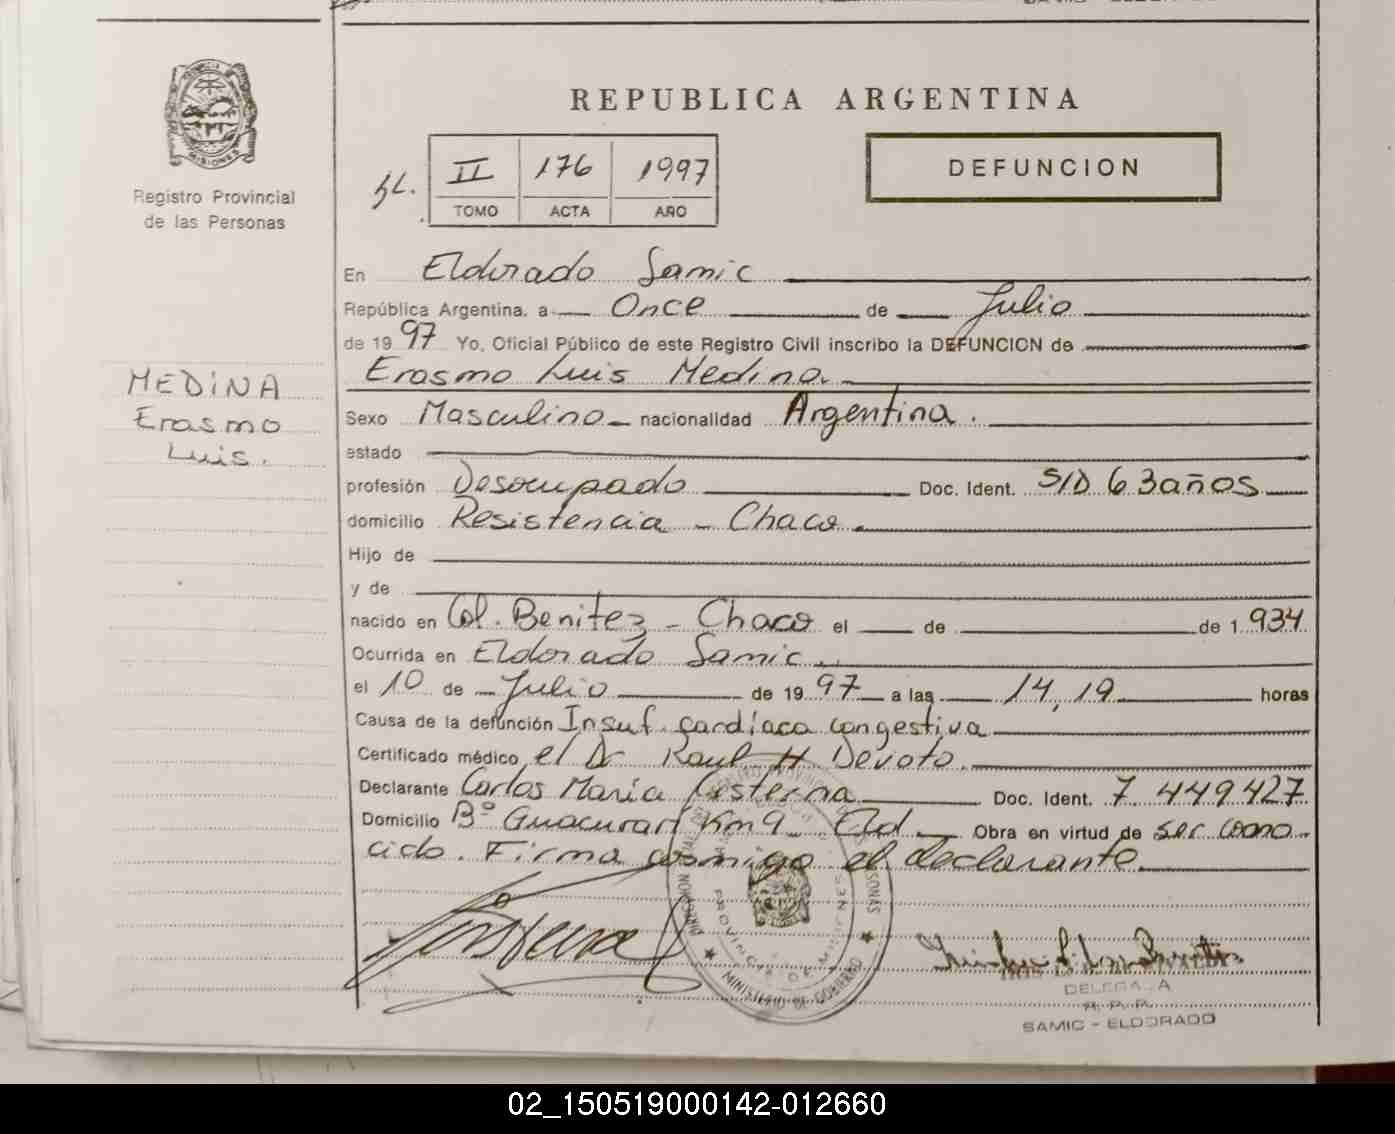 REPUBLICA ARGENTINA
MISIONES
Registro Provincial
de las Personas
II 176 1997
TOMO ACTA AÑO
DEFUNCION
En Eldorado Samic
República Argentina. a Once de Julio
de 1997 Yo, Oficial Público de este Registro Civil inscribo la DEFUNCION de
Erasmo Luis Medina.
MEDINA
Erasmo
Luis.
Sexo Masculino nacionalidad Argentina.
estado
profesión Desocupado Doc. Ident. S/D 63años
domicilio Resistencia - Chaco.
Hijo de
y de
nacido en Col. Benitez - Chaco el de de 1934
Ocurrida en Eldorado Samic.
el 10 de Julio de 1997 a las 14,19 horas
Causa de la defunción Insuf. cardiaca congestiva
Certificado médico el Dr Raul H Devoto.
Declarante Carlos Maria Cisterna Doc. Ident. 7 449427
Domicilio Bº Guacurari Km 9 Eld Obra en virtud de ser cono
cido. Firma conmigo el declarante
MINISTERIO DE GOBIERNO
PROVINCIA DE MISIONES
DELEGADA
R.P.P.
SAMIC - ELDORADO
02_150519000142-012660